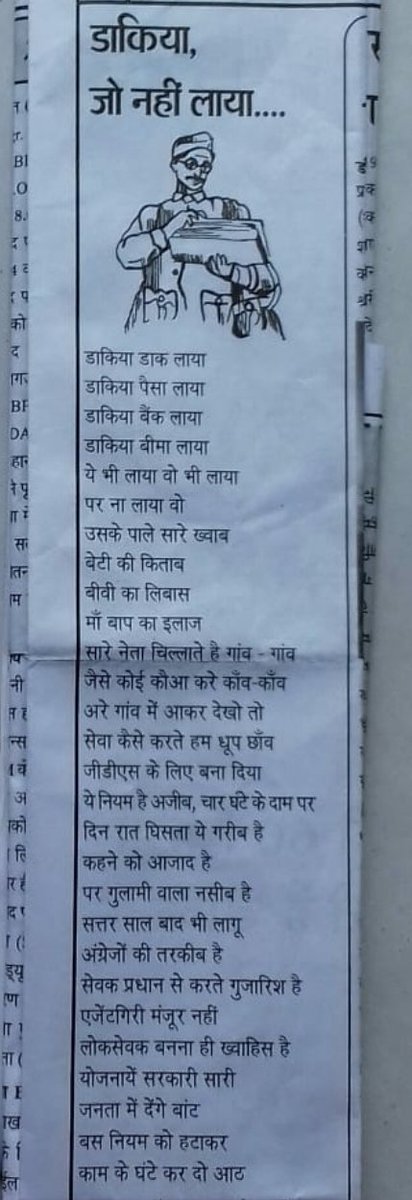 डाकिया,
जो नहीं लाया....
डाकिया डाक लाया
डाकिया पैसा लाया
डाकिया बैंक लाया
डाकिया बीमा लाया
ये भी लाया वो भी लाया
पर ना लाया वो
उसके पाले सारे ख्वाब
बेटी की किताब
बीवी का लिबास
माँ बाप का इलाज
सारे नेता चिल्लाते है गांव - गांव
जैसे कोई कौआ करे काँव-काँव
अरे गांव में आकर देखो तो
सेवा कैसे करते हम धूप छाँव
जीडीएस के लिए बना दिया
ये नियम है अजीब, चार घंटे के दाम पर
दिन रात घिसता ये गरीब है
कहने को आजाद है
पर गुलामी वाला नसीब है
सत्तर साल बाद भी लागू
अंग्रेजों की तरकीब है
सेवक प्रधान से करते गुजारिश है
एजेंटगिरी मंजूर नहीं
लोकसेवक बनना ही ख्वाहिस है
योजनायें सरकारी सारी
जनता में देंगे बांट
बस नियम को हटाकर
काम के घंटे कर दो आठ